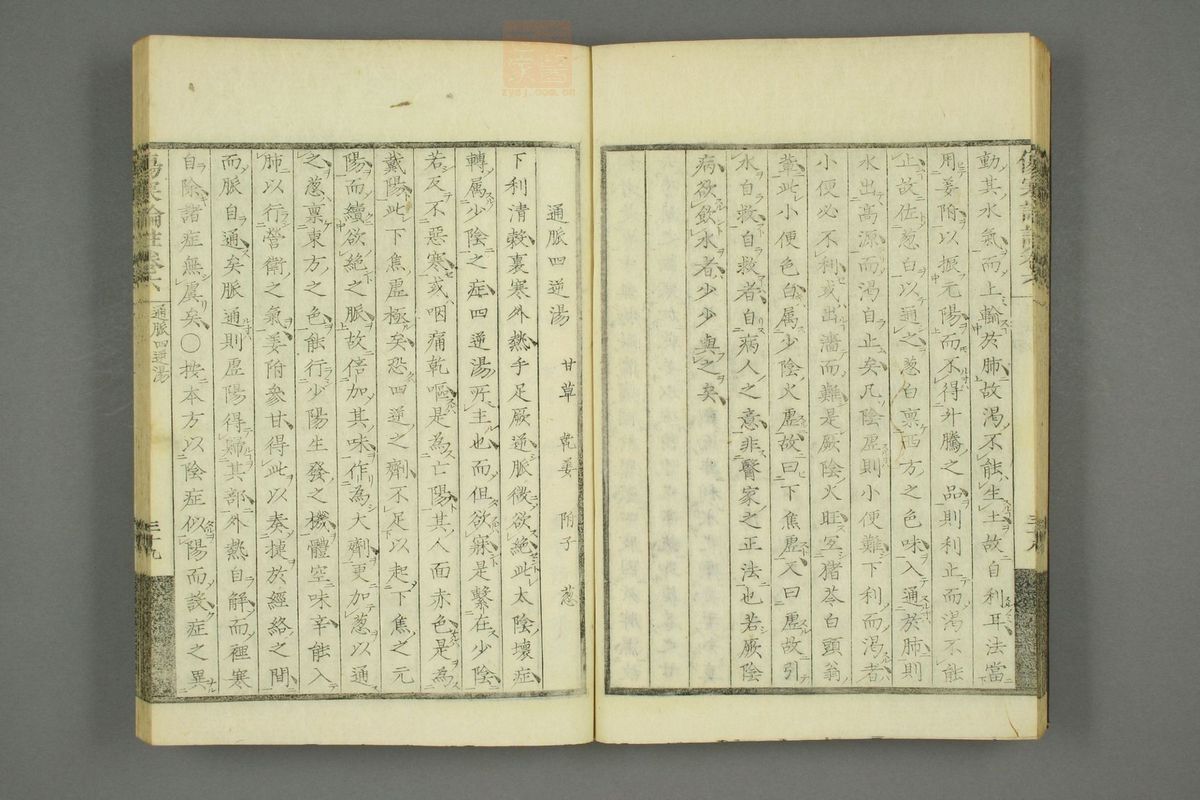 動其水氣而上輸於肺故渴不能生土故自利耳法當
用姜附以振元陽而不得升騰之品則利止而渴不能
止故佐葱白以通之葱白禀西方之色味入通於肺則
水出高源而渴自止矣凡陰虛則小便難下利而渴者
小便必不利或出濇而難是厥陰火旺宜猪苓白頭翁
輩此小便色白属少陰火虛故曰下焦虛又曰虛故引
水自救自救者自病人之意非醫家之正法也若厥陰
病欲飲水者少少與之矣
通脈四逆湯 甘草 乾姜 附子 葱
下利清穀裏寒外熱手足厥逆脈微欲絶此太陰壞症
轉属少陰之症四逆湯所主也而但欲寐是繫在少陰
若反不惡寒或咽痛乾嘔是為亡陽其人面赤色是為
戴陽此下焦虛極矣恐四逆之劑不足以起下焦之元
陽而續欲絶之脈故倍加其味作為大劑更加葱以通
之葱禀東方之色能行少陽生發之機體空味辛能入
肺以行營衛之氣姜附參甘得此以奏捷於經絡之間
而脈自通矣脈通則虛陽得歸其部外熱自解而裡寒
自除諸症無虞矣〇按本方以陰症似陽而設症之異
傷寒論註卷六
通脈四逆湯
三十九